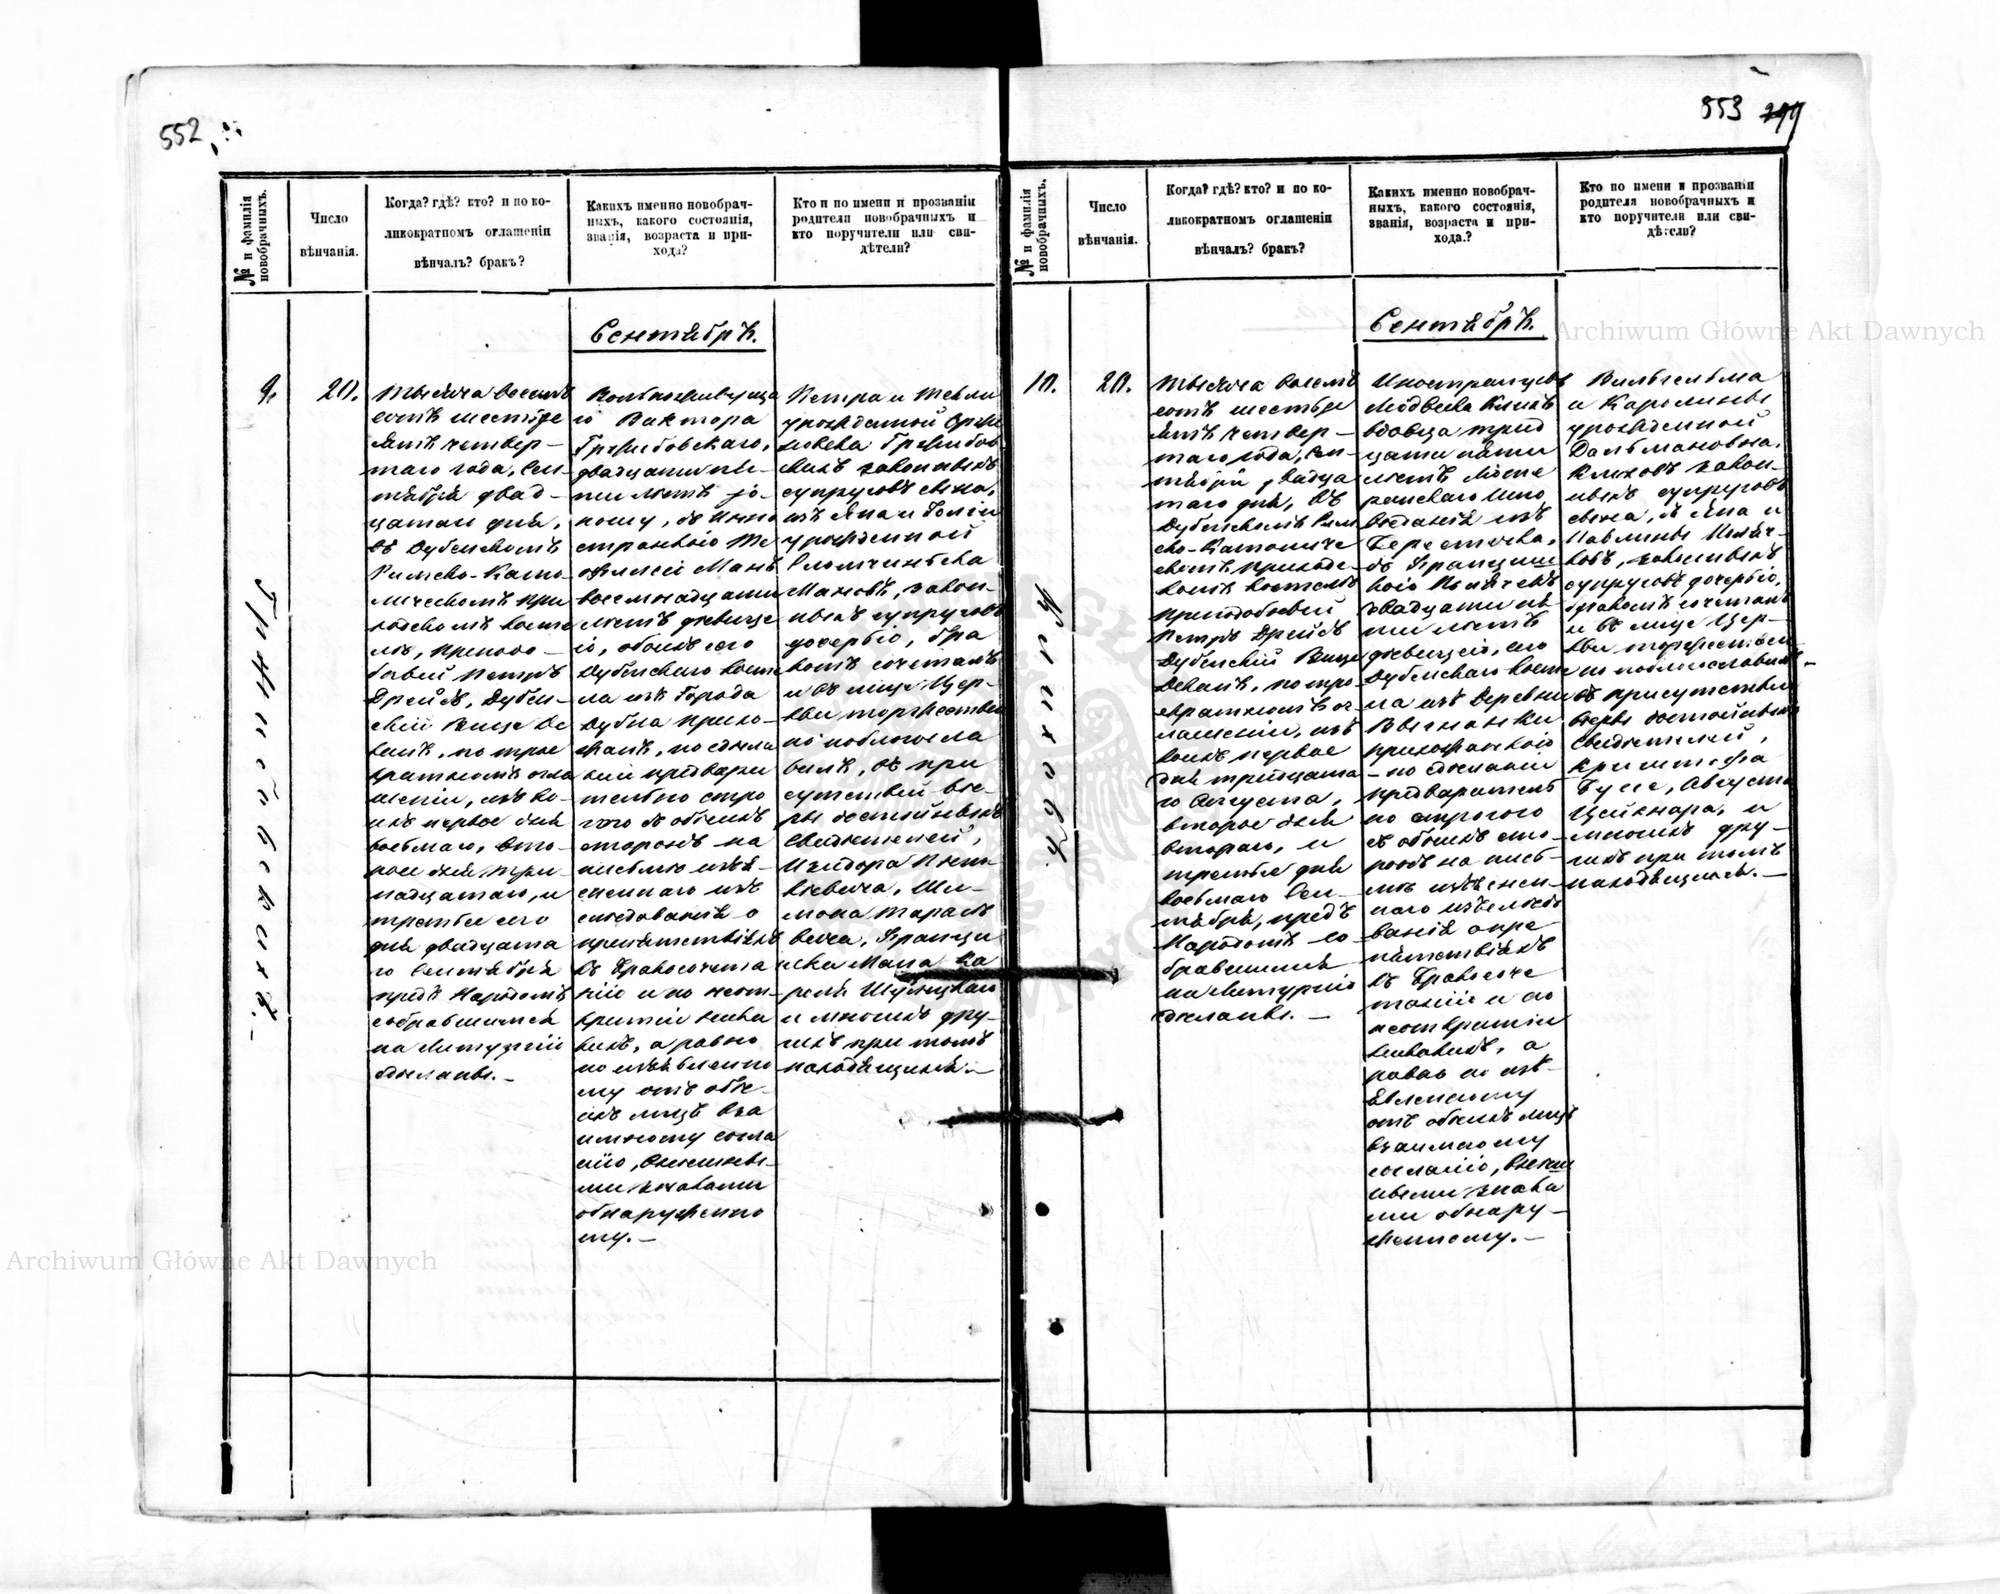 552
№ и фамилія
новобрачныхъ.
Число
вѣнчанія.
Когда? гдѣ? кто? и по ко-
ликократномъ оглашеніи
вѣнчалъ? бракъ?
Какихъ именно новобрач-
ныхъ, какого состоянія,
званія, возраста и при-
хода?
Кто и по имени и прозванію
родители новобрачныхъ и
кто поручители или сви-
дѣтели?
Сентябрь.
9.
20.
Тысяча восемь
сотъ шестьде
ятъ четвер-
таго года, Сен-
тября двад-
цатаго дня,
въ Дубенскомъ
Римско-Като-
лическомъ при
ходскомъ косте
лѣ, Преподо-
бный Петръ
Дрейсъ, Дубен-
скій Вице Де
канъ, по трое
кратномъ огла
шеніи, изъ ко-
ихъ первое дня
восьмаго, вто-
рое дня три-
надцатаго, и
третье сего
дня двадцата
го Сентября
предъ Народомъ
собравшимся
на Литургію
сдѣланы.-
Виктора
двадцати пя-
ти лѣтъ ю-
ношу, съ Ино
странкою Те
офилею Манъ
восемнадцати
лѣтъ дѣвице
ю, обоихъ сего
Дубенскаго косте
ла изъ Города
Дубна прихо-
жанъ, по сдѣла
ніи предвари
тельно стро
гаго съ обѣихъ
сторонъ на
письмѣ изъя-
сненнаго изъ
слѣдованія о
препятствіяхъ
къ бракосочета
нію и по неот-
крытіи ника
кихъ, а равно
по изъявленно
му отъ обѣ-
ихъ лицъ вза
имному согла
сію, внѣшны-
ми знаками
обнаруженно
му.-
Петра и Теклі
урожденной
законныхъ
супруговъ сына,
изъ Яна и
урожденной
законныхъ
супруговъ
дочерью, бра
комъ сочеталъ
и въ лице Цер-
кви торжествен
но поблагосла
вилъ, въ при
сутствіи вѣ-
ры достойныхъ
Свидѣтелей,
Изидора
Ши-
мона Тарасе
вича, Франци
шка Мана Ка
роля
и многихъ дру-
гихъ при томъ
находящихся.-
553
№ и фамилія
новобрачныхъ.
Число
вѣнчанія.
Когда? гдѣ? кто? и по ко-
ликократномъ оглашеніи
вѣнчалъ? бракъ?
Какихъ именно новобрач-
ныхъ, какого состоянія,
званія, возраста и при-
хода.?
Кто по имени и прозваніи
родители новобрачныхъ и
кто поручители или сви-
дѣтели?
Сентябрь.
10.
20.
Тысяча восемь
сотъ шестьде
ятъ четвер-
таго года, Сен-
тября двадца
таго дня, въ
Дубенскомъ Рим
ско-Католиче
скомъ приход-
скомъ костелѣ
Преподобный
Петръ Дрейсъ
Дубенскій Вице
Деканъ, по тро-
екратномъ ог
лашеніи, изъ
коихъ первое
дня тридцата
го Августа,
второе дня
втораго, и
третье дня
восьмаго Сен-
тября, предъ
Народомъ со-
бравшимся
на Литургію
сдѣланы.-
Иностранцевъ
Людвика Клинъ
вдовца трид
цати пяти
лѣтъ Люте
ранскаго
изъ
Берестечка,
съ Франциш
кою
двадцати пя-
ти лѣтъ
дѣвицею, сего
Дубенскаго косте
ла изъ Деревни
прихожанкою
-по сдѣланіи
предваритель
но строгого
съ обѣихъ сто-
ронъ на пись-
мѣ изъяснен-
наго изъслѣдо
ванія о пре
пятствіяхъ
къ бракосоче
танію и по
неоткрытіи
никакихъ, а
равно по изъ-
явленному
отъ обѣихъ лицъ
взаимному
согласію, внѣш
ными знака
ми обнару-
женному.-
Вильгельма
и Каролины
урожденной
Дальмановна,
Клиновъ закон-
ныхъ супруговъ
сына, съ Яна и
Павлины
законныхъ
супруговъ дочерью,
бракомъ сочеталъ
и въ лице Цер-
кви торжествен-
но поблагословилъ-
въ присутствіи
вѣры достойныхъ
Свидѣтелей,
Криштофа
Бусе, Августа
и
многихъ дру-
гихъ при томъ
находящихся.-
Archiwum Główne Akt Dawnych
Archiwum Główne Akt Dawnych